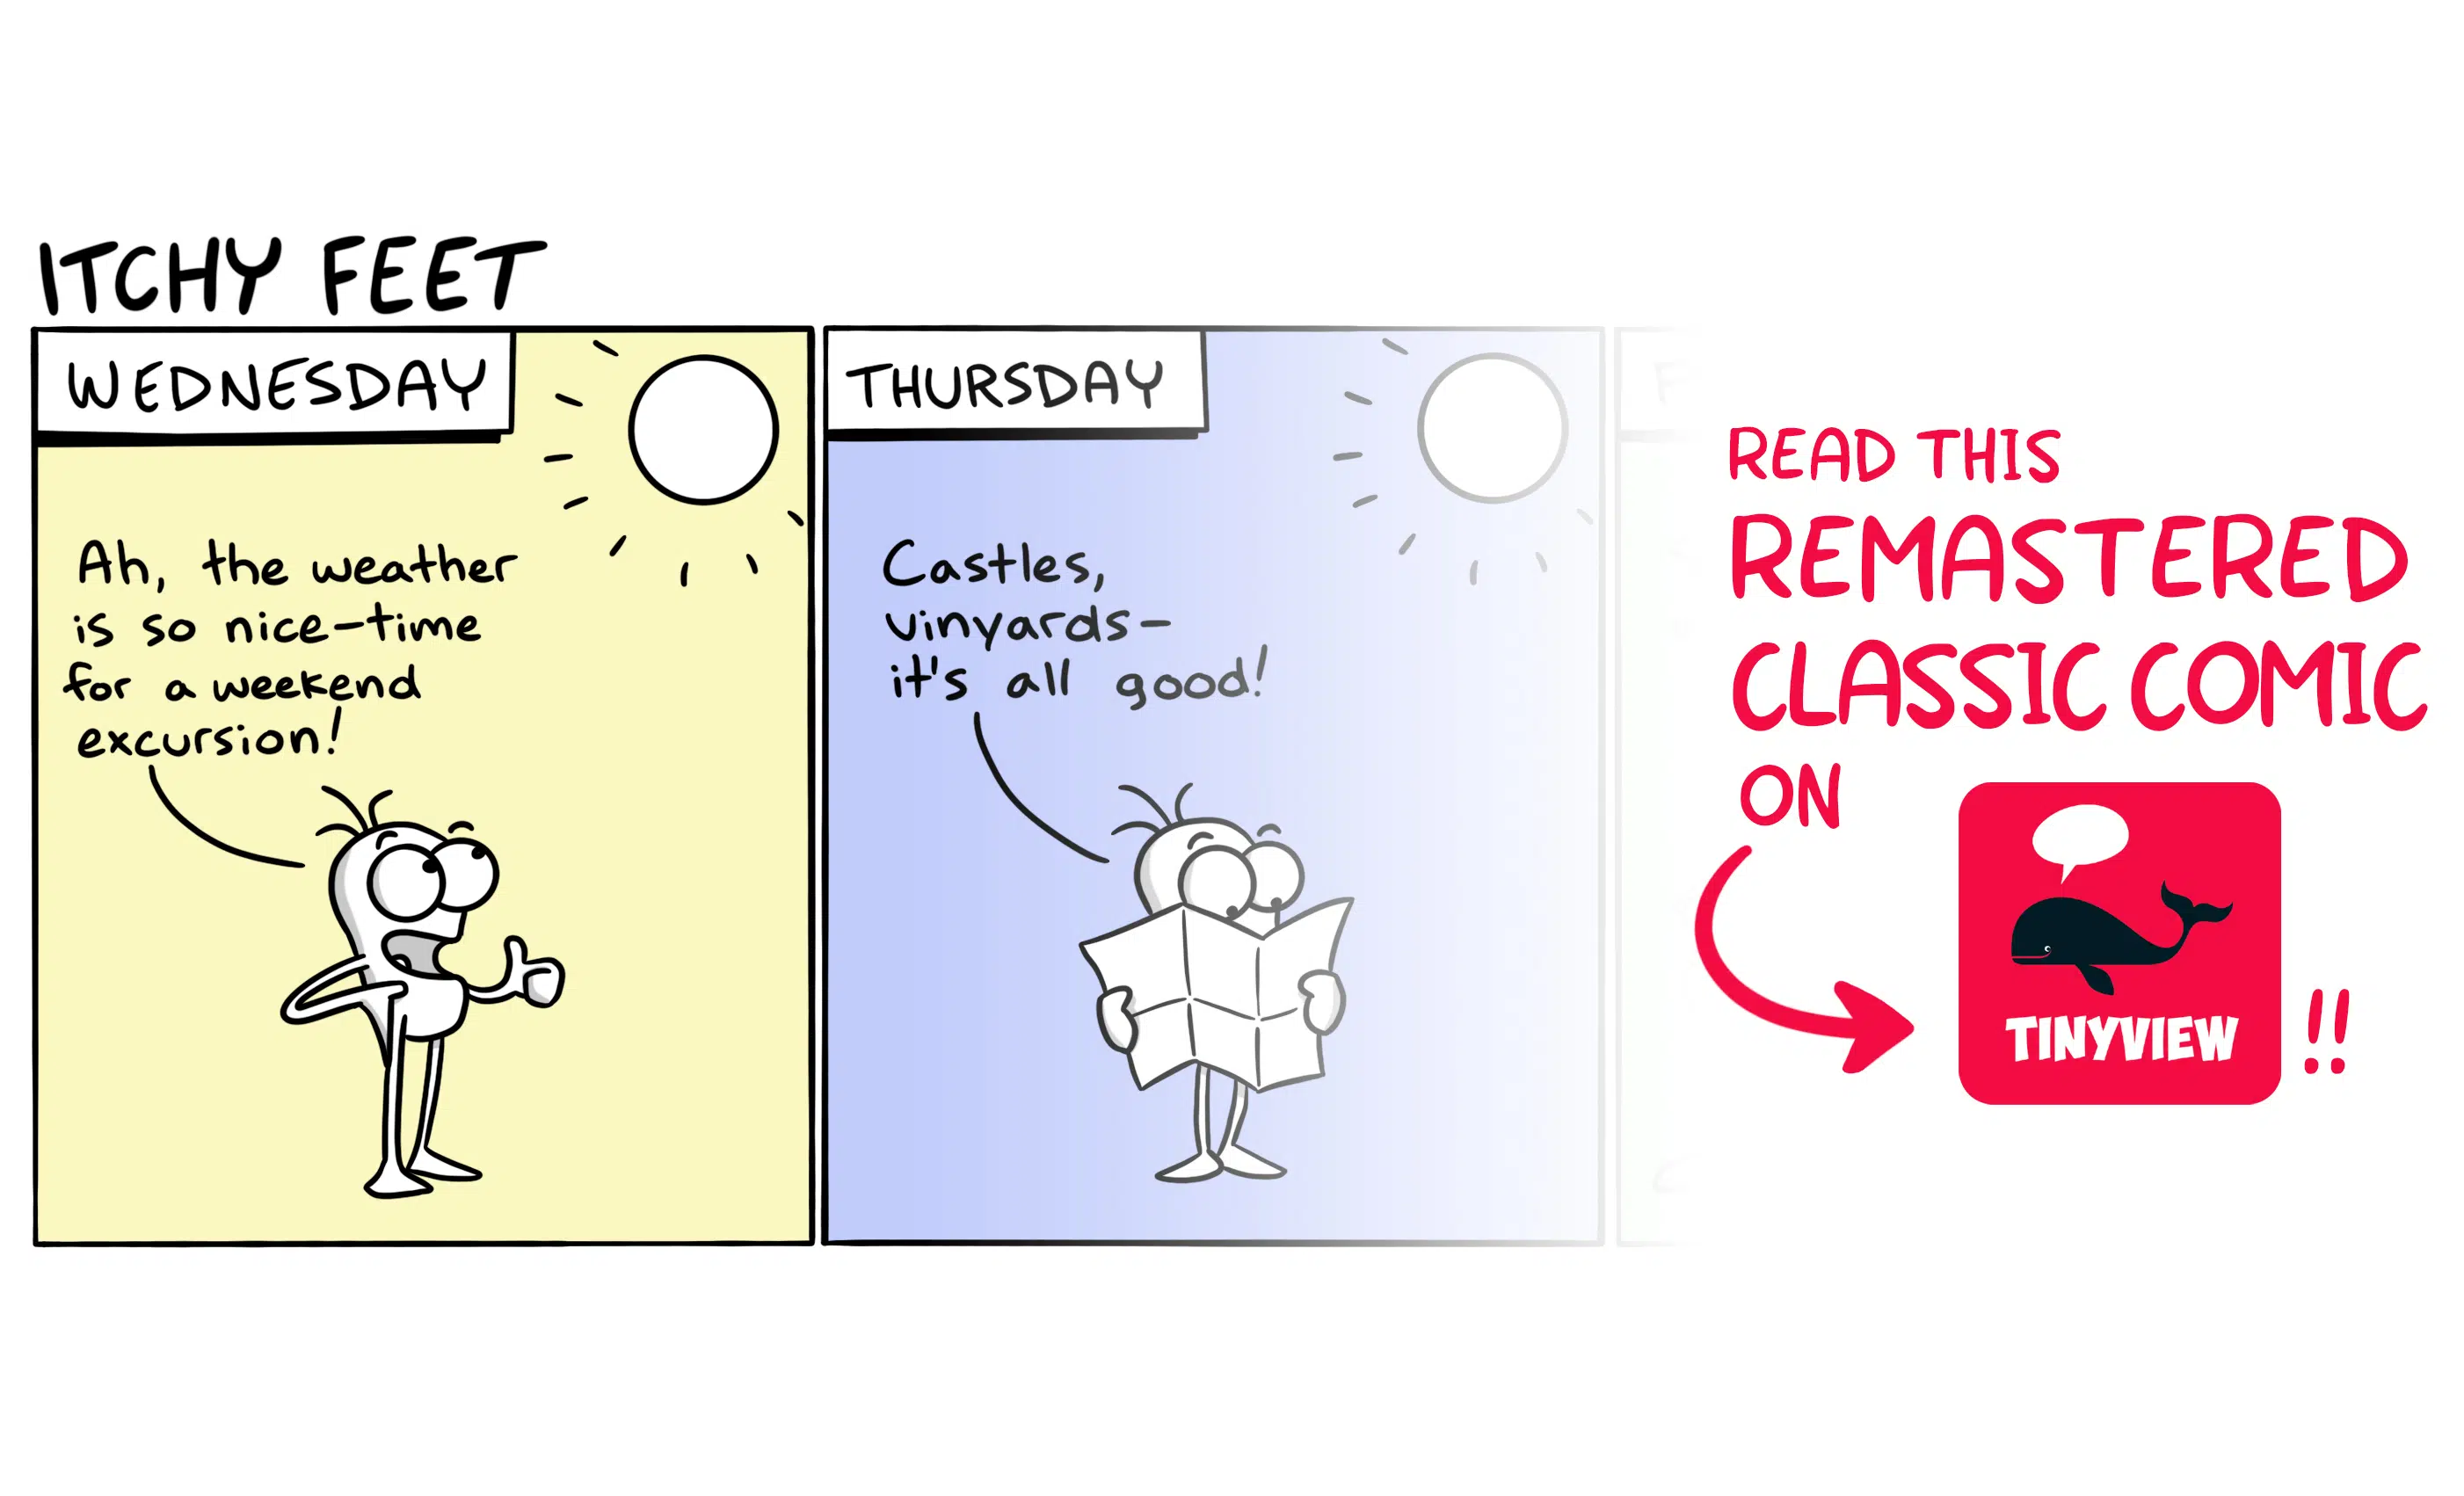 ITCHY FEET
WEDNESDAY
Ah, the weather
is so nice-time
for a weekend
excursion!
THURSDAY
Castles,
vinyards-
it's all good!
READ THIS
REMASTERED
CLASSIC COMIC
ON
TINYVIEW
!!